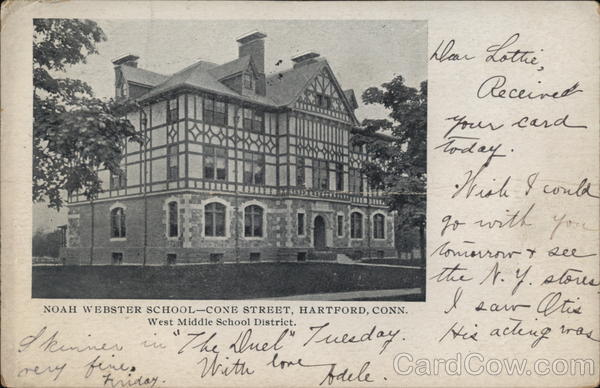 Dear Lottie,
Received
your card
today.
Wish I could
go with you
tomorrow & see
the N. Y. stores
I saw Otis
His acting was
NOAH WEBSTER SCHOOL—CONE STREET, HARTFORD, CONN.
West Middle School District.
Skinner in "The Duel" Tuesday.
very fine. With love
Friday. Adele.
CardCow.com